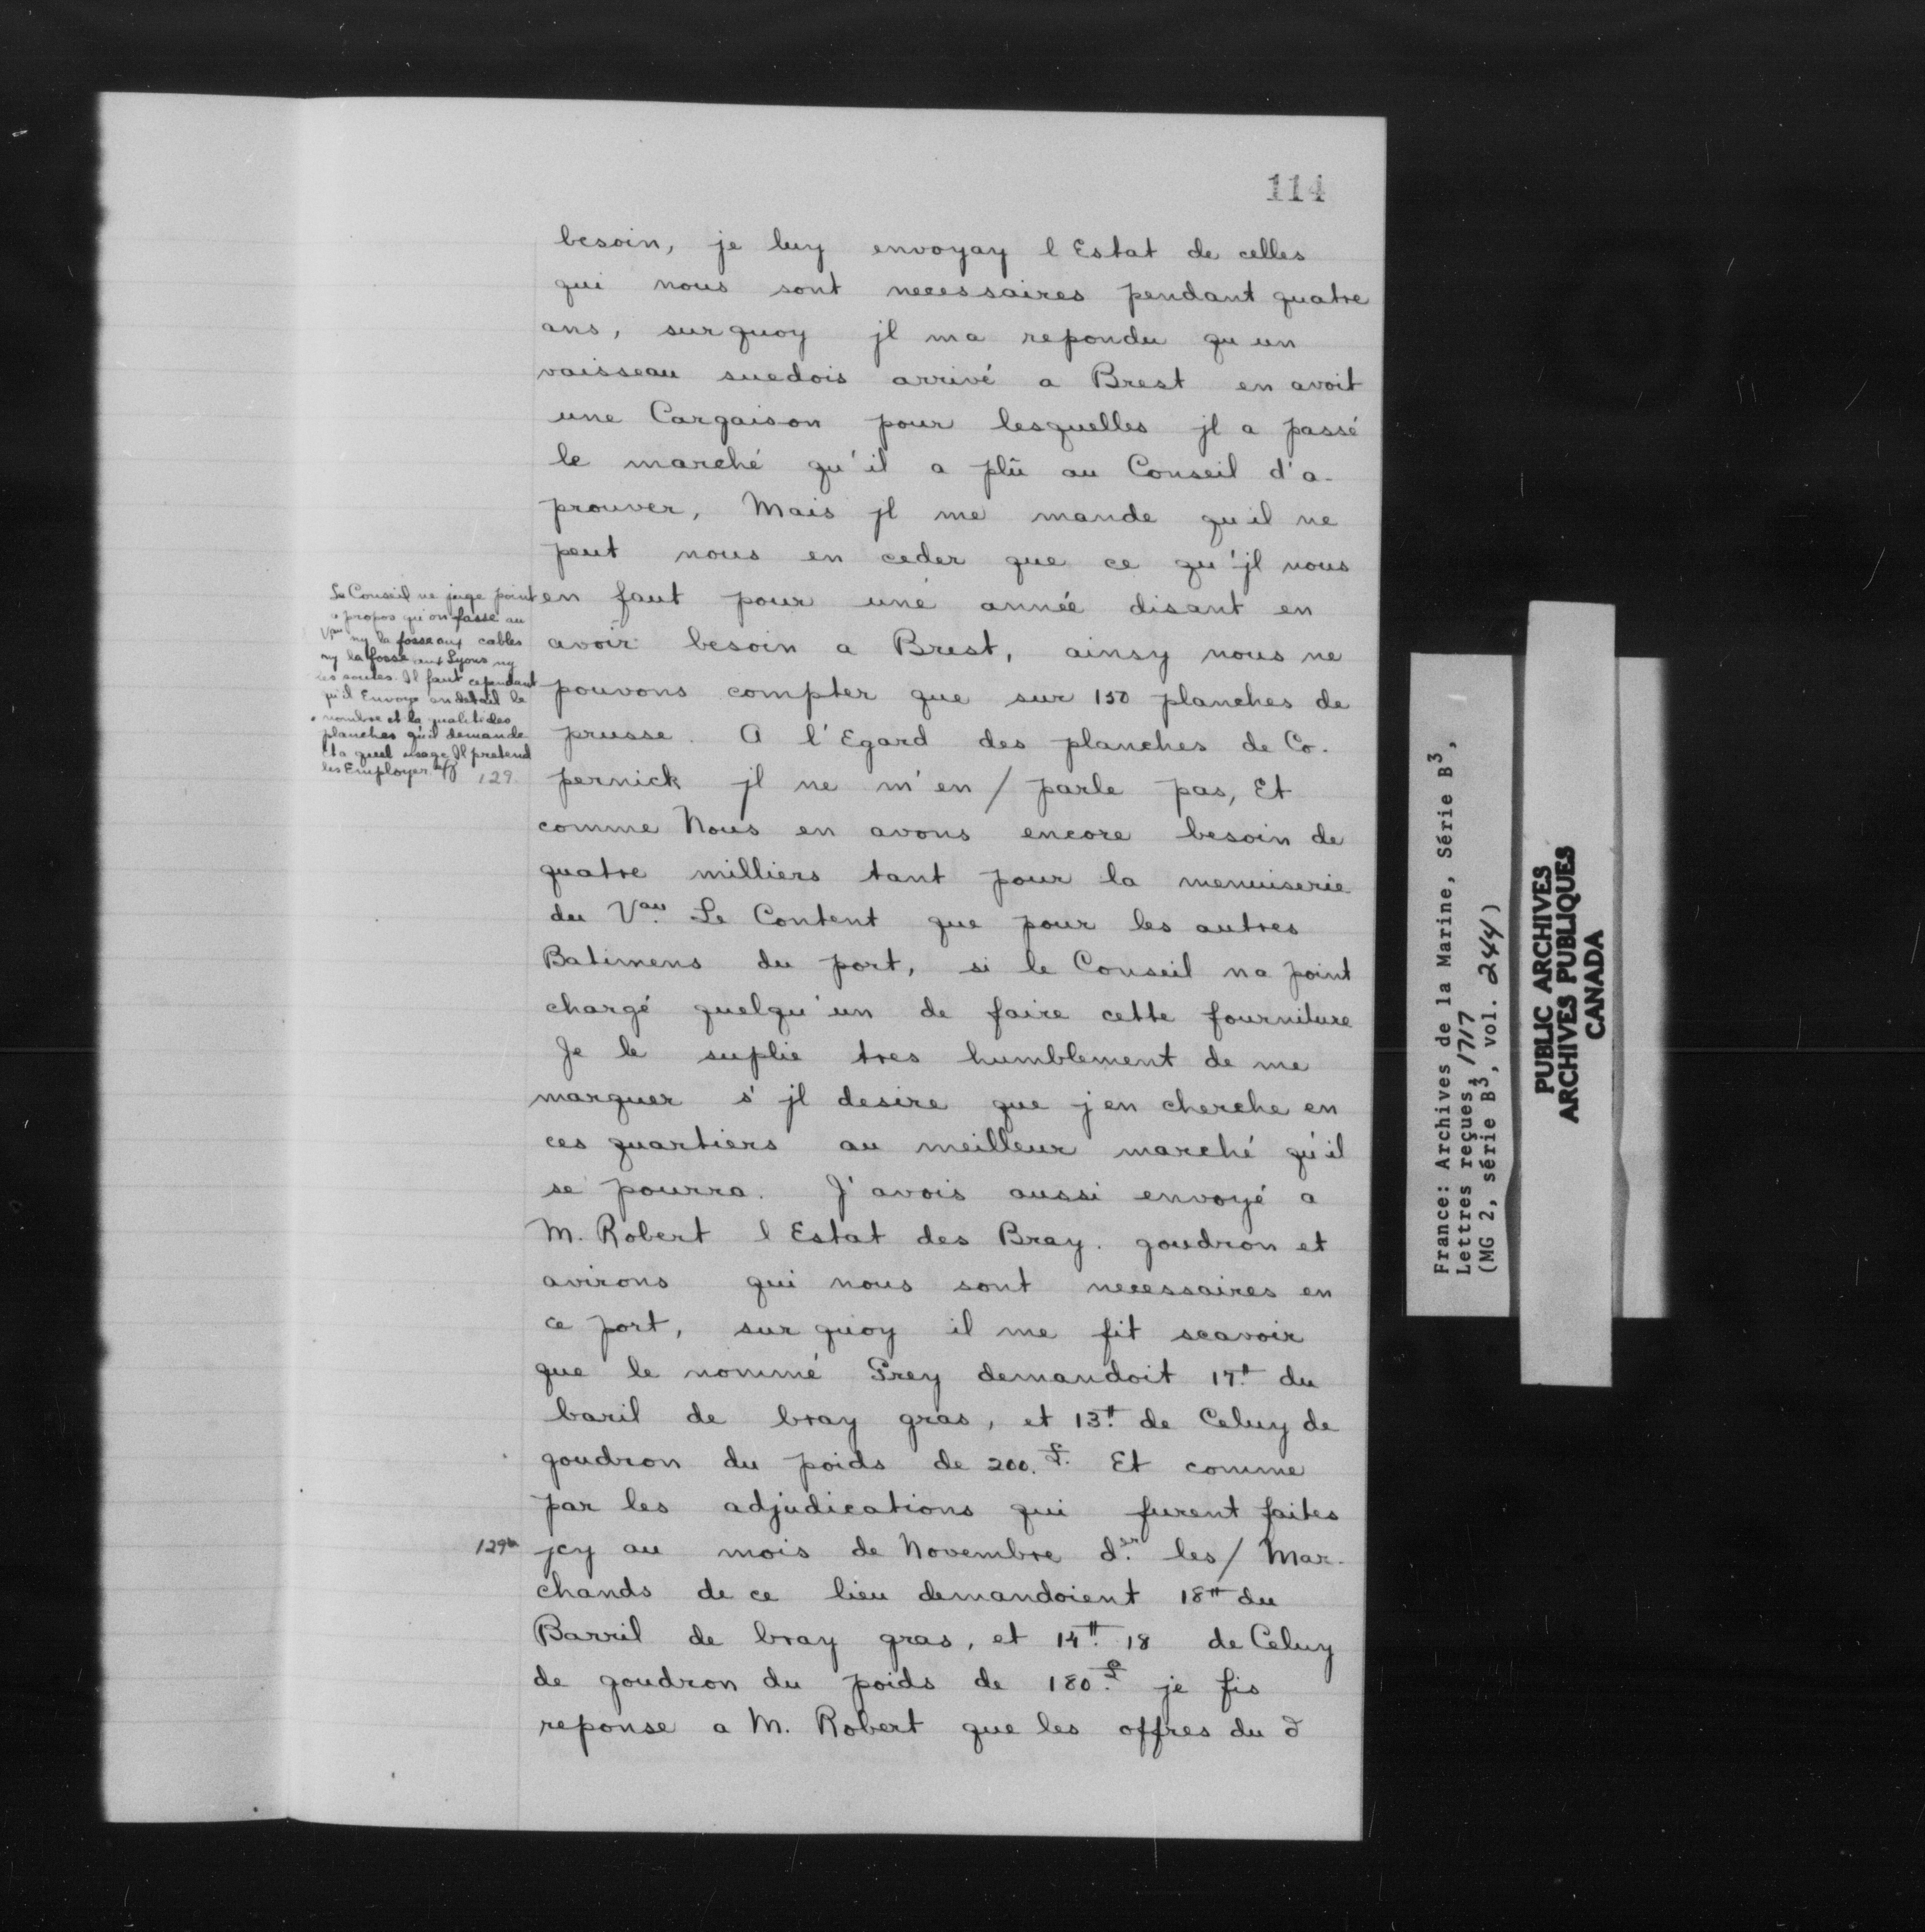 114
besoin, je luy envoyay l Estat de celles
qui nous sont necessaires pendant quatre
ans, surquoy jl ma repondu qu un
vaisseau suedois arrivé a Brest en avoit
une Cargaison pour lesquelles jl a passé
le marché qu'il a plû au Conseil d'a-
prouver, Mais jl me mande qu il ne
peut nous en ceder que ce qu'jl nous
en faut pour une année disant en
avoir besoin a Brest, ainsy nous ne
pouvons compter que sur 150 planches de
prusse. A l'Egard des planches de Co-
pernick jl ne m'en / parle pas, Et
comme Nous en avons encore besoin de
quatre milliers tant pour la menuiserie
du Vau Le Content que pour les autres
Batimens du port, si le Conseil na point
chargé quelqu'un de faire cette fourniture
Je le suplie tres humblement de me
marquer s' jl desire que j en cherche en
ces quartiers au meilleur marché qu'il
se pourra. J'avois aussi envoyé a
M. Robert l Estat des Bray. goudron et
avirons qui nous sont necessaires en
ce port, sur quoy il me fit scavoir
que le nommé Prey demandoit 17# du
baril de bray gras, et 13# de Celuy de
goudron du poids de 200. £. Et comme
par les adjudications qui furent faites
jcy au mois de Novembre d.er les / Mar-
chands de ce lieu demandoient 18# du
Barril de bray gras, et 14# 18 de Celuy
de goudron du poids de 180 £ je fis
reponse a M. Robert que les offres du d
Le Conseil ne juge point
a propos qu'on fasse au
Vau ny la fosse aux cables
ny la fosse aux Lyons ny
les soutes. Il faut cependant
qu'il Envoye en detail le
nombre et la qualité des
planches qu'il demande
a quel usage Il pretend
les Employer
129
129v
France: Archives de la Marine, Série B3,
Lettres reçues, 1717
(MG 2, série B3, vol. 244)
PUBLIC ARCHIVES
ARCHIVES PUBLIQUES
CANADA